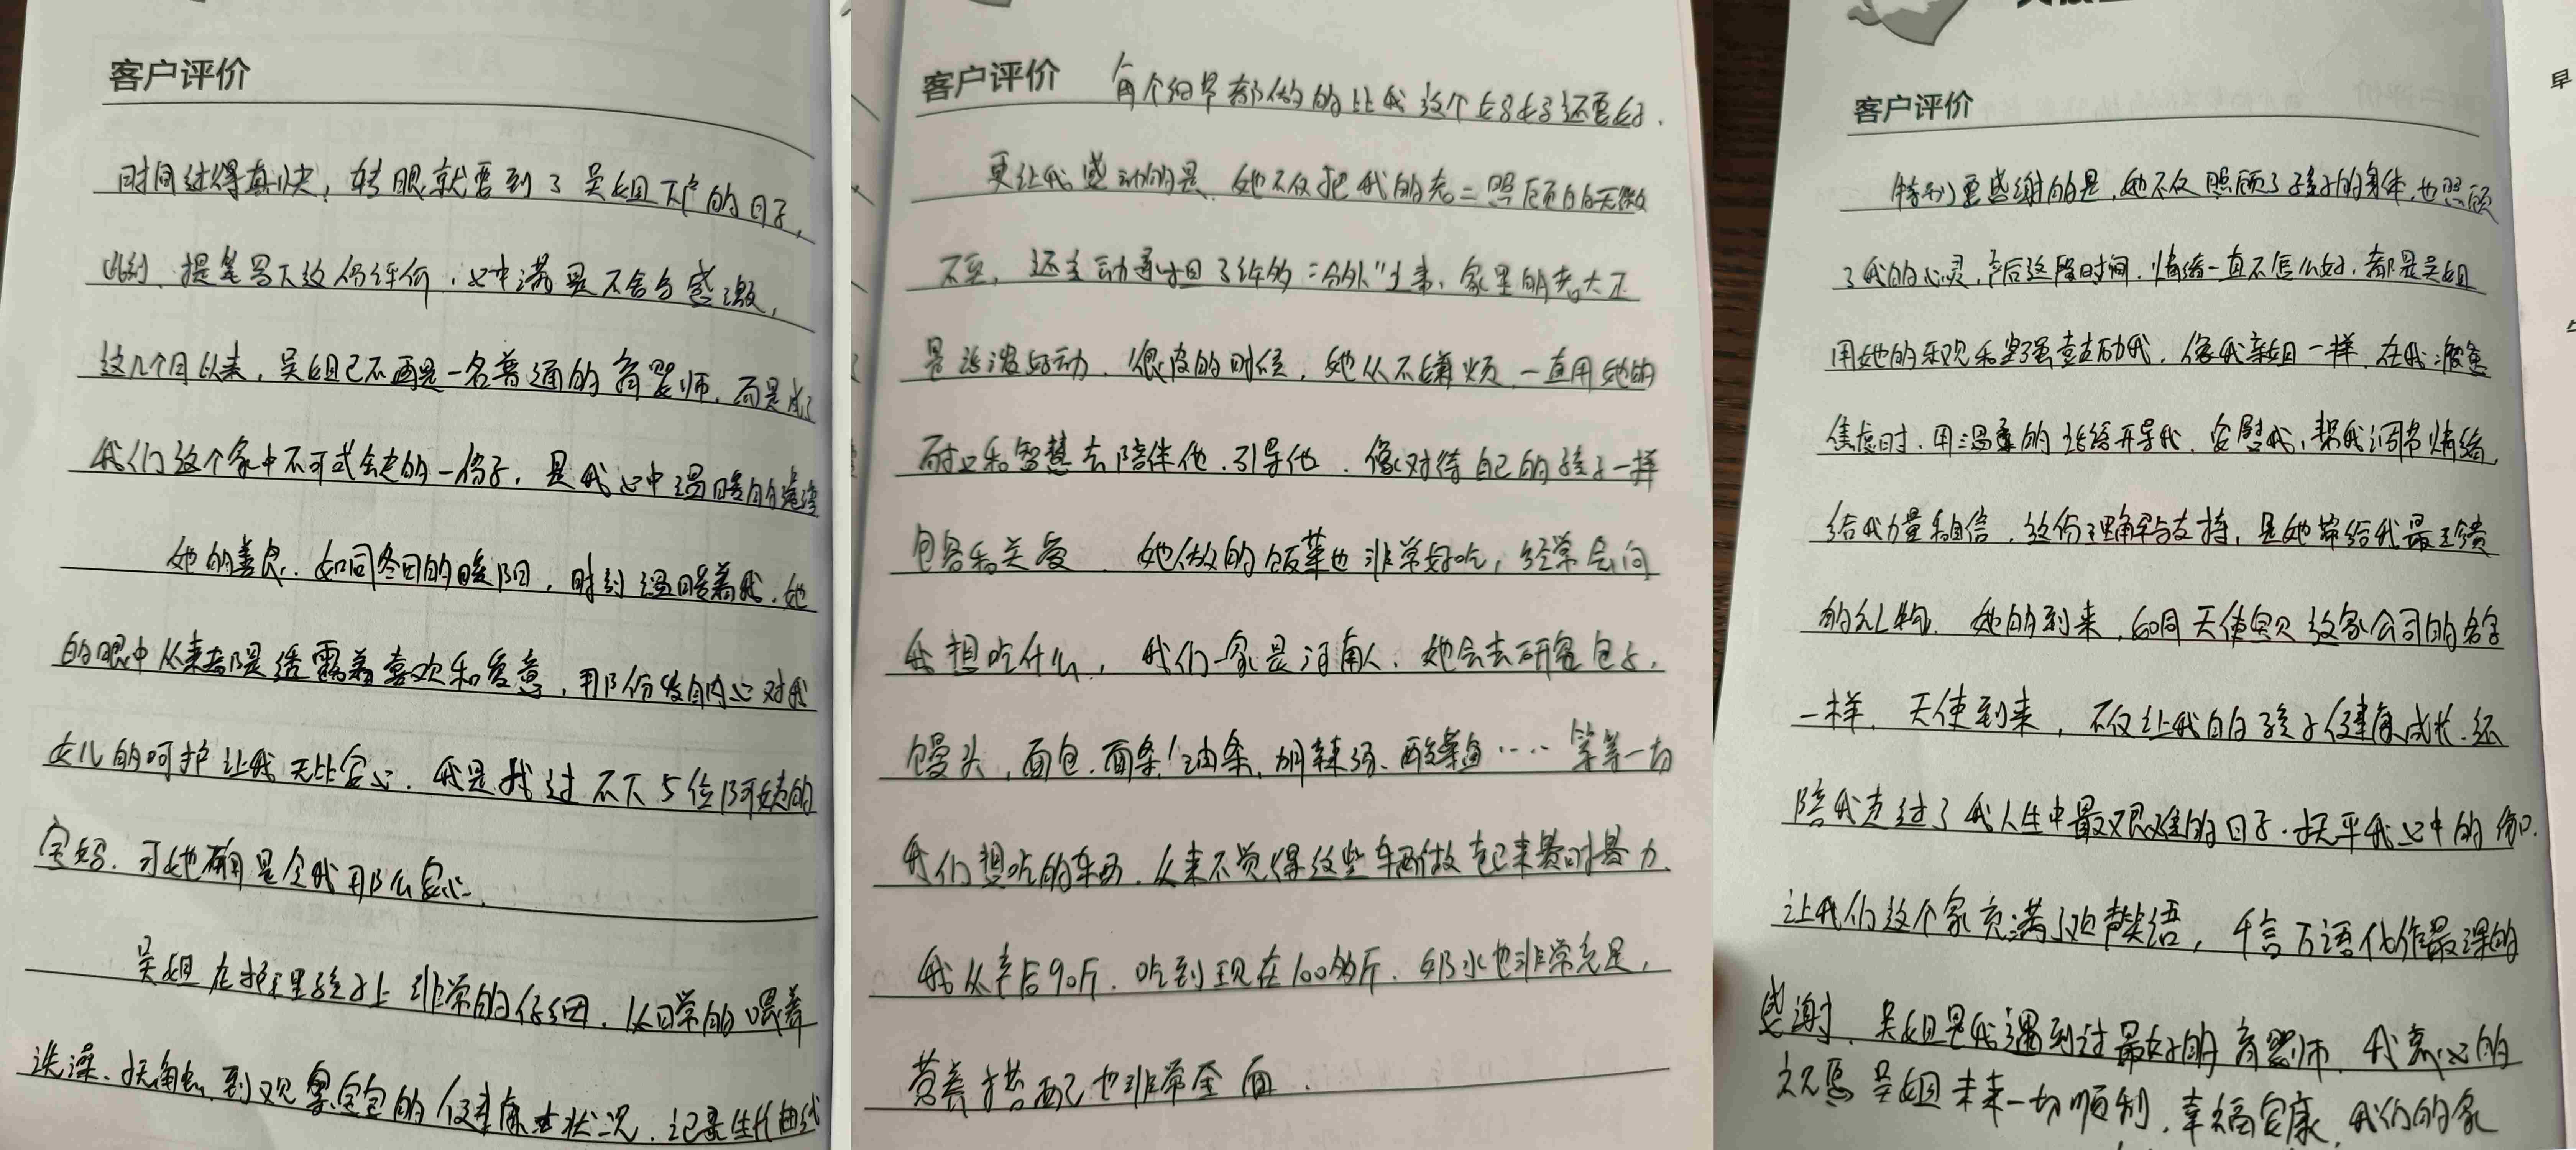 客户评价
时间过得真快，转眼就要到了吴姐下户的日子，
此刻，提笔写下这份评价，心中满是不舍与感激，
这几个月以来，吴姐已不再是一名普通的育婴师，而是成了
我们这个家中不可或缺的一份子，是我心中温暖的港湾
她的善良，如同冬日的暖阳，时刻温暖着我，她
的眼中从来都是透露着喜欢和爱意，用那份发自内心对我
女儿的呵护让我无比安心，我是找过不下5位阿姨的
宝妈，可她确是令我那么安心。
吴姐在护理孩子上非常的仔细，从日常的喂养
洗澡、抚触，到观察宝宝的健康状况，记录生长曲线
客户评价
每个细节都做的比我这个妈妈还要好，
更让我感动的是，她不仅把我的老二照顾的无微
不至，还主动承担了许多"分外"之事，家里的老大正
是活泼好动，很皮的时候，她从不嫌烦，一直用她的
耐心和智慧去陪伴他，引导他，像对待自己的孩子一样
包容和关爱，她做的饭菜也非常好吃，经常会问
我想吃什么，我们一家是河南人，她会去研究包子，
馒头，面包，面条，油条，胡辣汤、酸菜鱼……等等一切
我们想吃的东西，从来不觉得这些东西做起来费时费力，
我从产后90斤，吃到现在100多斤，奶水也非常充足，
营养搭配也非常全面．
客户评价
特别要感谢的是，她不仅照顾了孩子的身体，也照顾
了我的心灵，产后这段时间，情绪一直不怎么好，都是吴姐
用她的乐观和坚强鼓励我，像我亲姐一样，在我疲惫
焦虑时，用温柔的话语开导我，安慰我，帮我调节情绪，
给我力量和自信，这份理解与支持，是她带给我最珍贵
的礼物，她的到来，如同天使宝贝这家公司的名字
一样，天使到来，不仅让我的孩子健康成长，还
陪我走过了我人生中最艰难的日子，抚平我心中的伤口，
让我们这个家充满了欢声笑语，千言万语化作最深的
感谢，吴姐是我遇到过最好的育婴师，我衷心的
祝愿吴姐未来一切顺利，幸福安康，我们的家
早